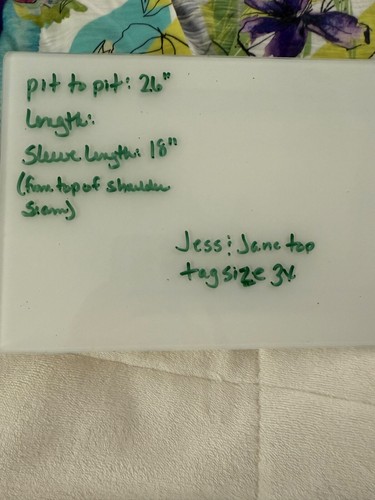 pit to pit: 26"
Length:
Sleeve Length: 18"
(from top of shoulder
Siem)
Jess & Jane top
tag size 3X